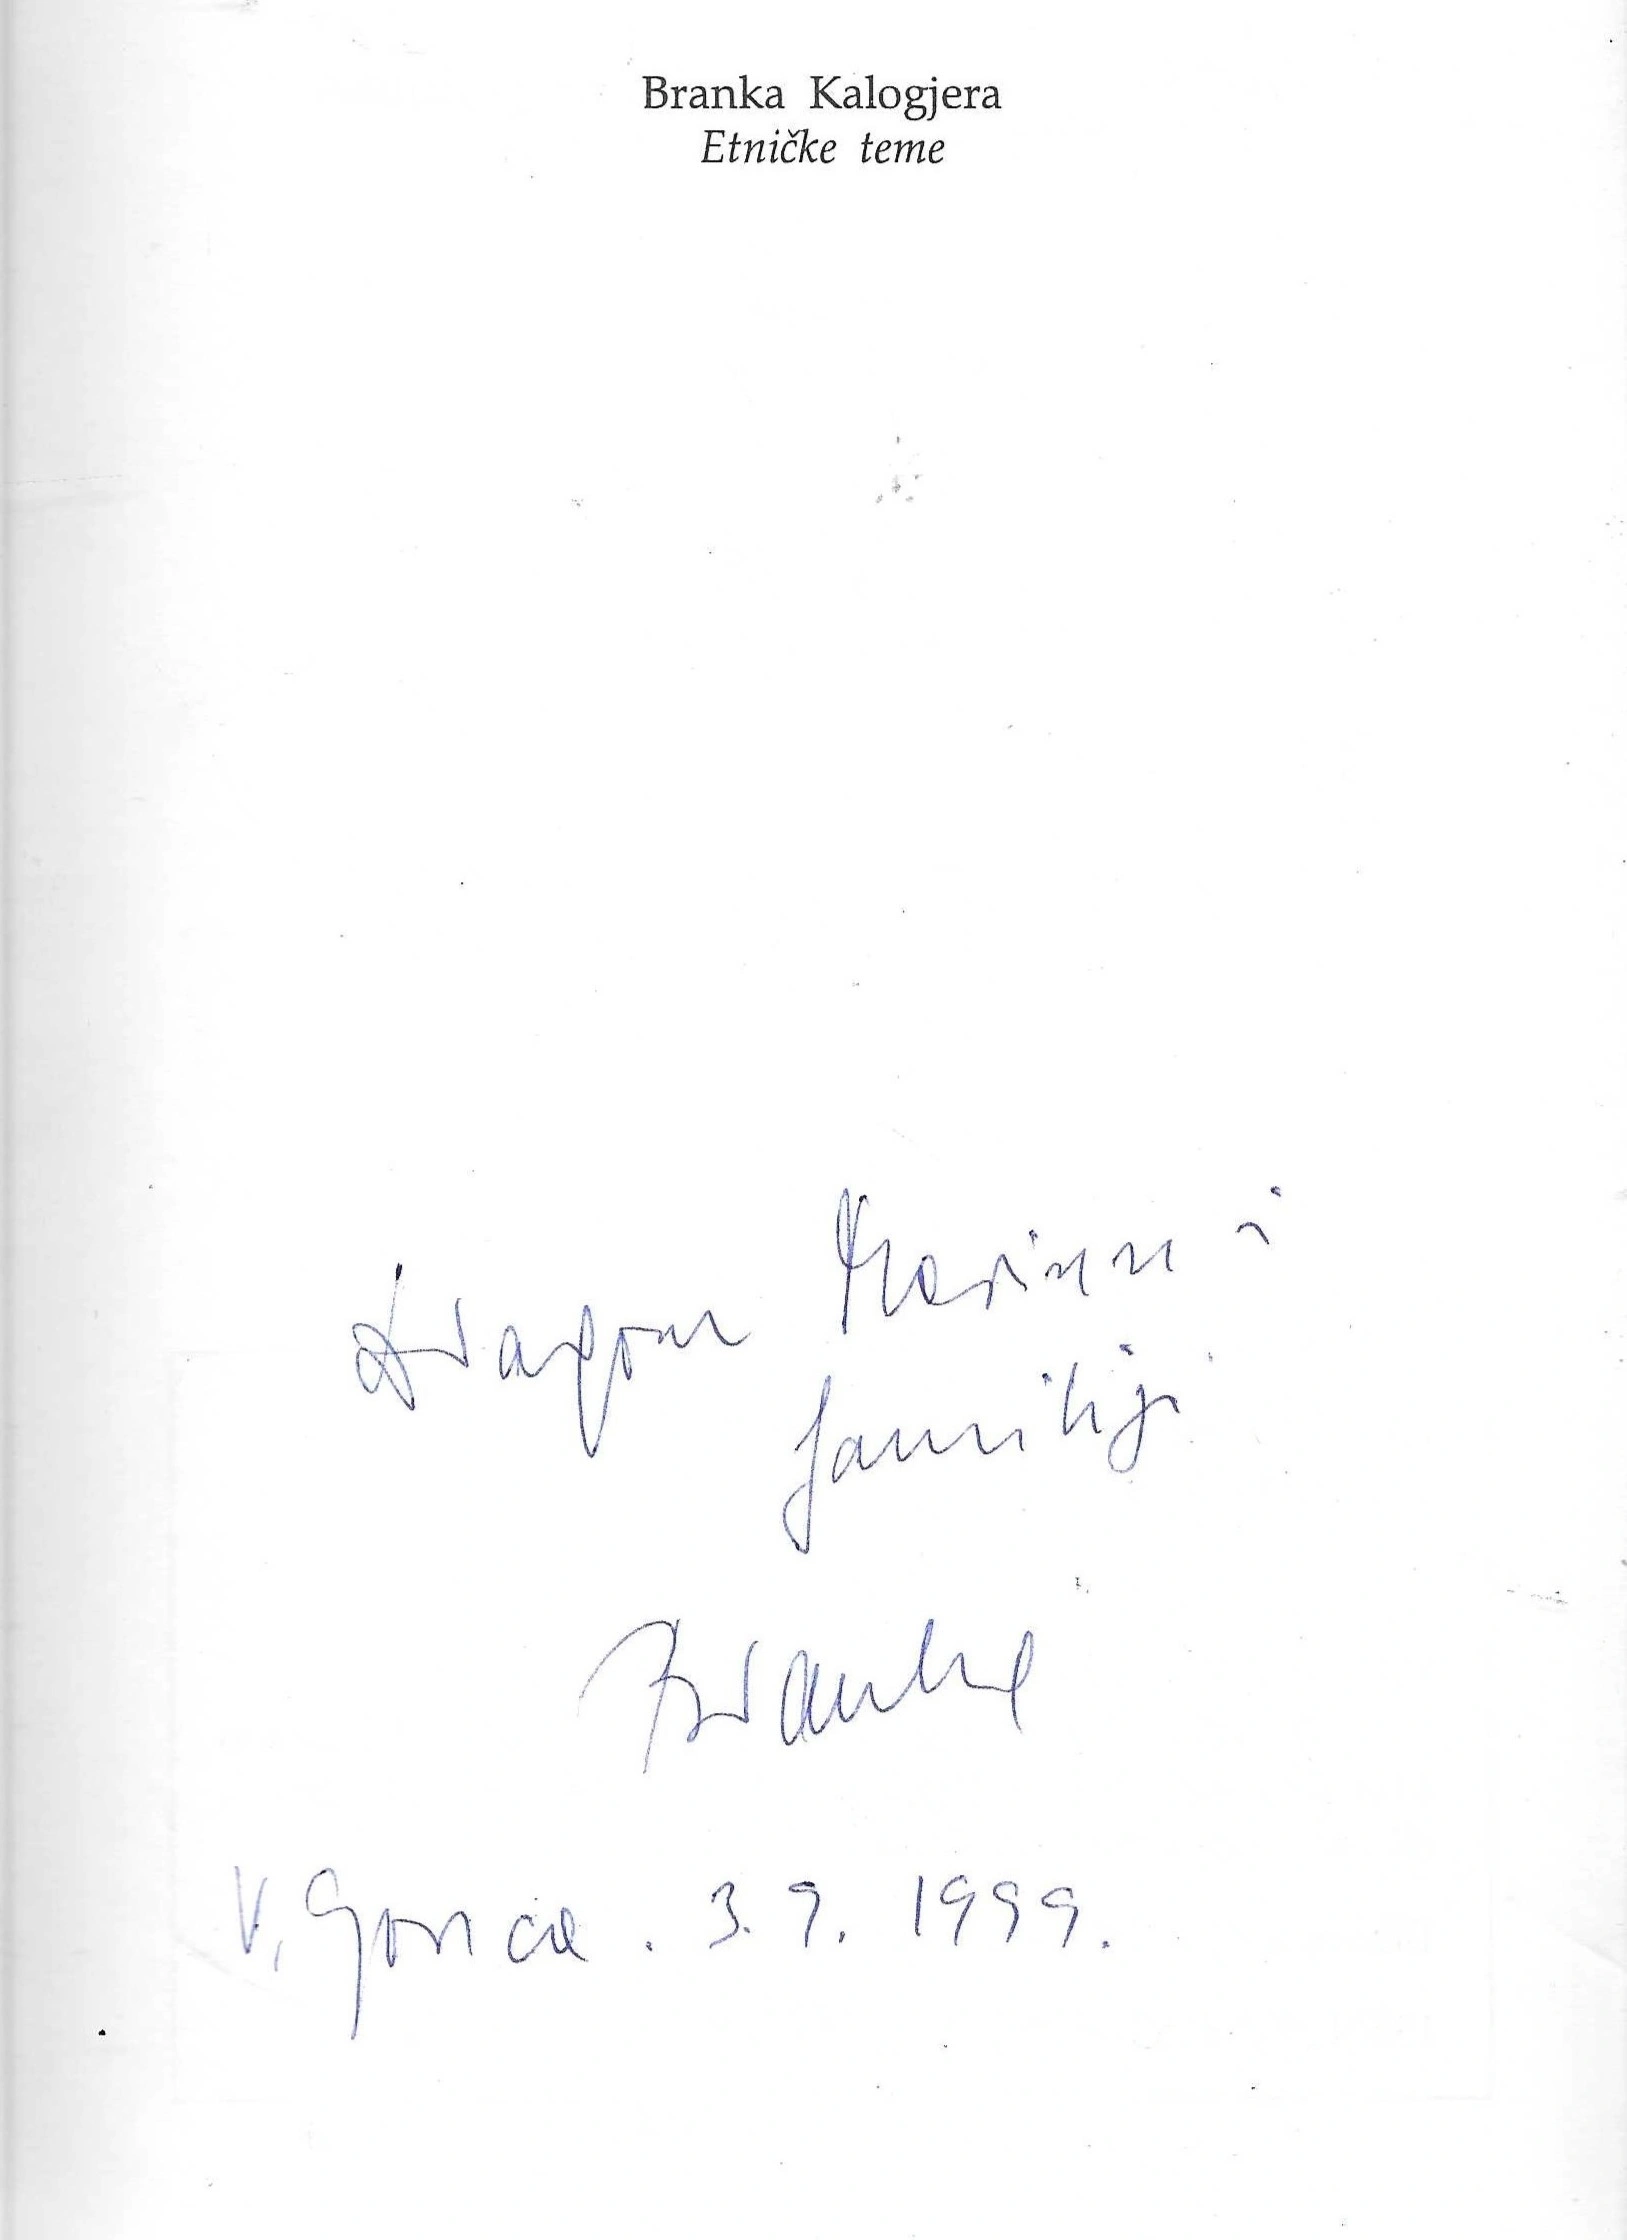 Branka Kalogjera
Etničke teme
Dragom Marinu i
familiji
Branka
V. Gorica. 3. 9. 1999.